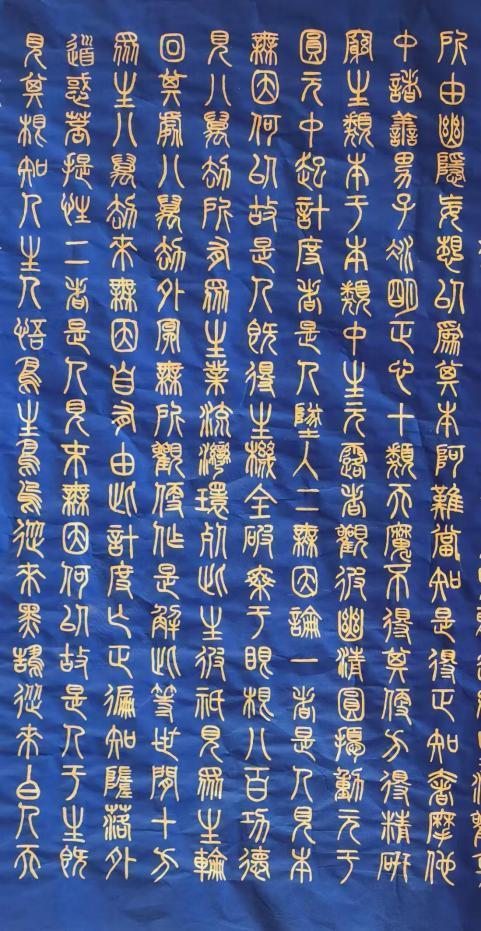 所由幽隱妄想以為其本阿難當知是得正知奢摩他
中諸善男子凝明正心十類天魔不得其便方得精研
窮生類本于本類中生元露者觀彼幽清圓擾動元于
圓元中起計度者是人墜入二無因論一者是人見本
無因何以故是人既得生機全破乘于眼根八百功德
見八萬劫所有眾生業流灣環死此生彼祇見眾生輪
回其處八萬劫外冥無所觀便作是解此等世間十方
眾生八萬劫來無因自有由此計度亡正徧知墮落外
道惑菩提性二者是人見末無因何以故是人于生既
見其根知人生人悟鳥生鳥烏從來黑鵠從來白人天